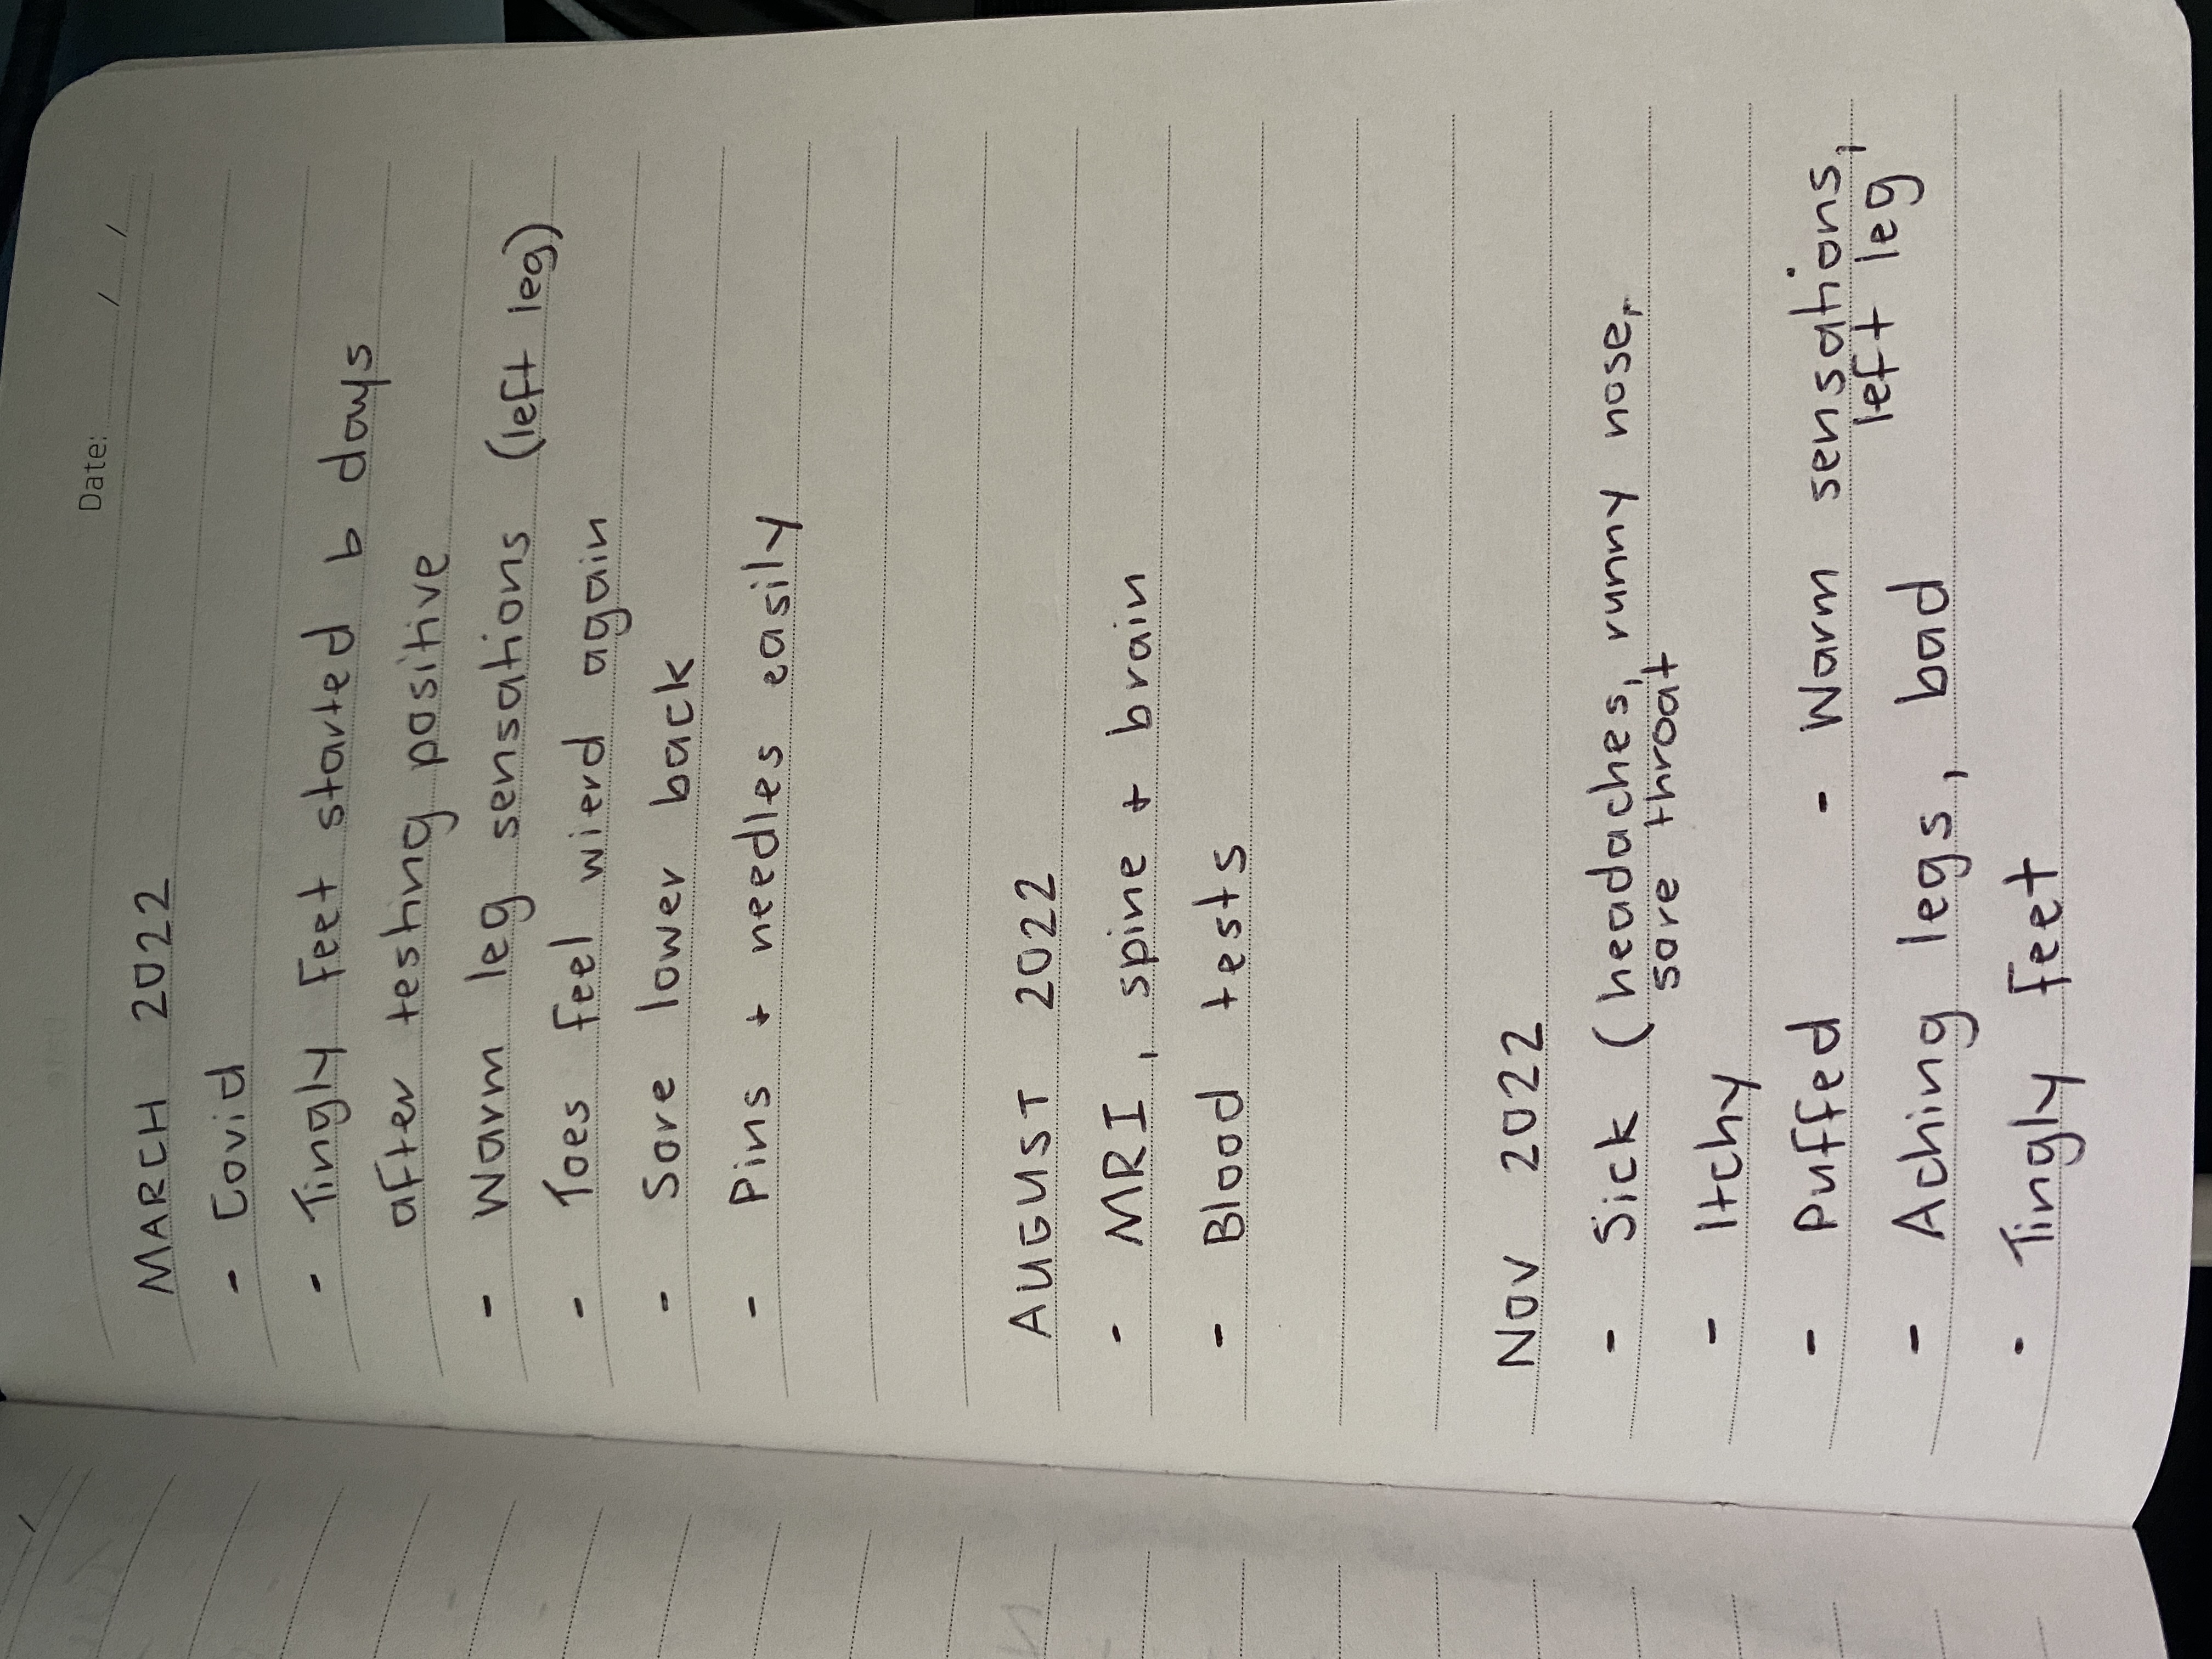 Date: / /
MARCH 2022
- Covid
- Tingly feet started 6 days
after testing positive
- Warm leg sensations (left leg)
- Toes feel wierd again
- Sore lower back
- Pins + needles easily
AUGUST 2022
- MRI, spine + brain
- Blood tests
NOV 2022
- Sick (headaches, runny nose,
sore throat
- Itchy
- Puffed - Warm sensations,
left leg
- Aching legs, bad
- Tingly feet